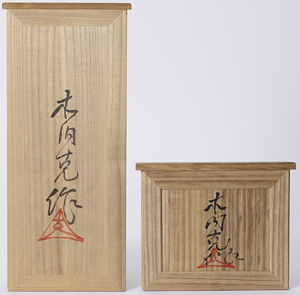 木内克作
木内克作